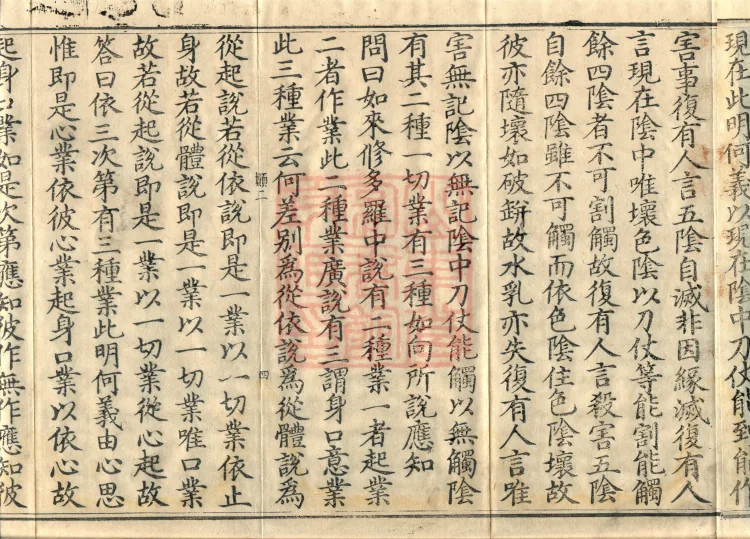 現在此明何義以現在陰中刀仗能到能作
害事復有人言五陰自滅非因緣滅復有人
言現在陰中唯壞色陰以刀仗等能割能觸
餘四陰者不可割觸故復有人言殺害五陰
自餘四陰雖不可觸而依色陰住色陰壞故
彼亦隨壞如破缾故水乳亦失復有人言唯
害無記陰以無記陰中刀仗能觸以無觸陰
有其二種一切業有三種如向所說應知
問曰如來修多羅中說有二種業一者起業
二者作業此二種業廣說有三謂身口意業
此三種業云何差別爲從依說爲從體說爲
從起說若從依說即是一業以一切業依止
身故若從體說即是一業以一切業唯口業
故若從起說即是一業以一切業從心起故
答曰依三次第有三種業此明何義由心思
惟即是心業依彼心業起身口業以依心故
起身口業如是次第應知彼作無作應知彼
顛二
四